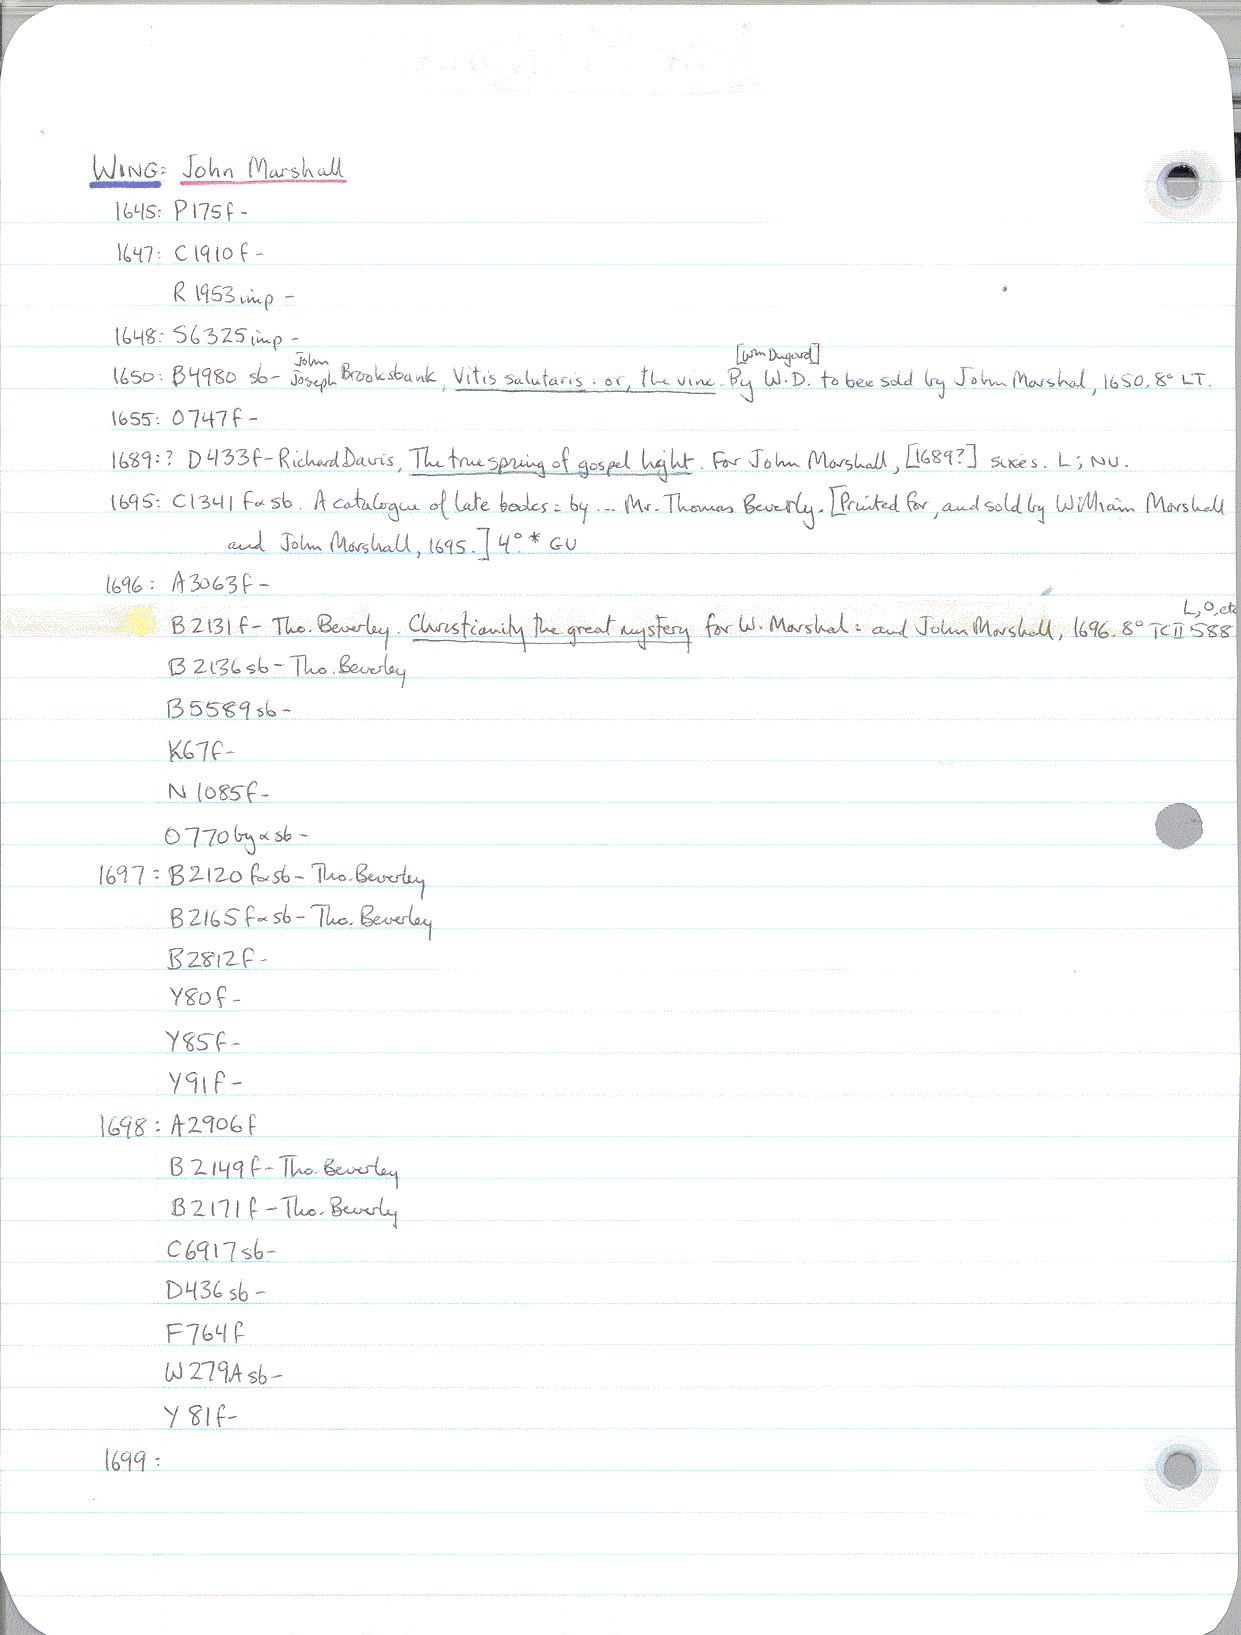 WING: John Marshall
1645: P175f-
1647: C1910f-
R1953imp-
1648: S6325imp-
John [Wm Dugard]
1650: B4980 sb- Joseph Brooksbank, Vitis salutaris: or, the vine. By W.D. to bee sold by John Marshal, 1650. 8° LT.
1655: O747f-
1689:? D433f-Richard Davis, The true spring of gospel light. For John Marshall, [1689?] sixes. L; NU.
1695: C1341 f&sb. A catalogue of late books: by ... Mr. Thomas Beverly. [Printed for, and sold by William Marshall
and John Marshall, 1695.] 4°.* GU
1696: A3063f-
L,O,etc
B2131f- Tho. Beverley. Christianity the great mystery for W. Marshal: and John Marshall, 1696. 8° TCII 588
B2136sb- Tho. Beverley
B5589sb-
K67f-
N1085f-
O770by&sb-
1697: B2120f&sb- Tho. Beverley
B2165f&sb- Tho. Beverley
B2812f-
Y80f-
Y85f-
Y91f-
1698: A2906f
B2149f-Tho. Beverley
B2171f-Tho. Beverly
C6917sb-
D436sb-
F764f
W279Asb-
Y81f-
1699: